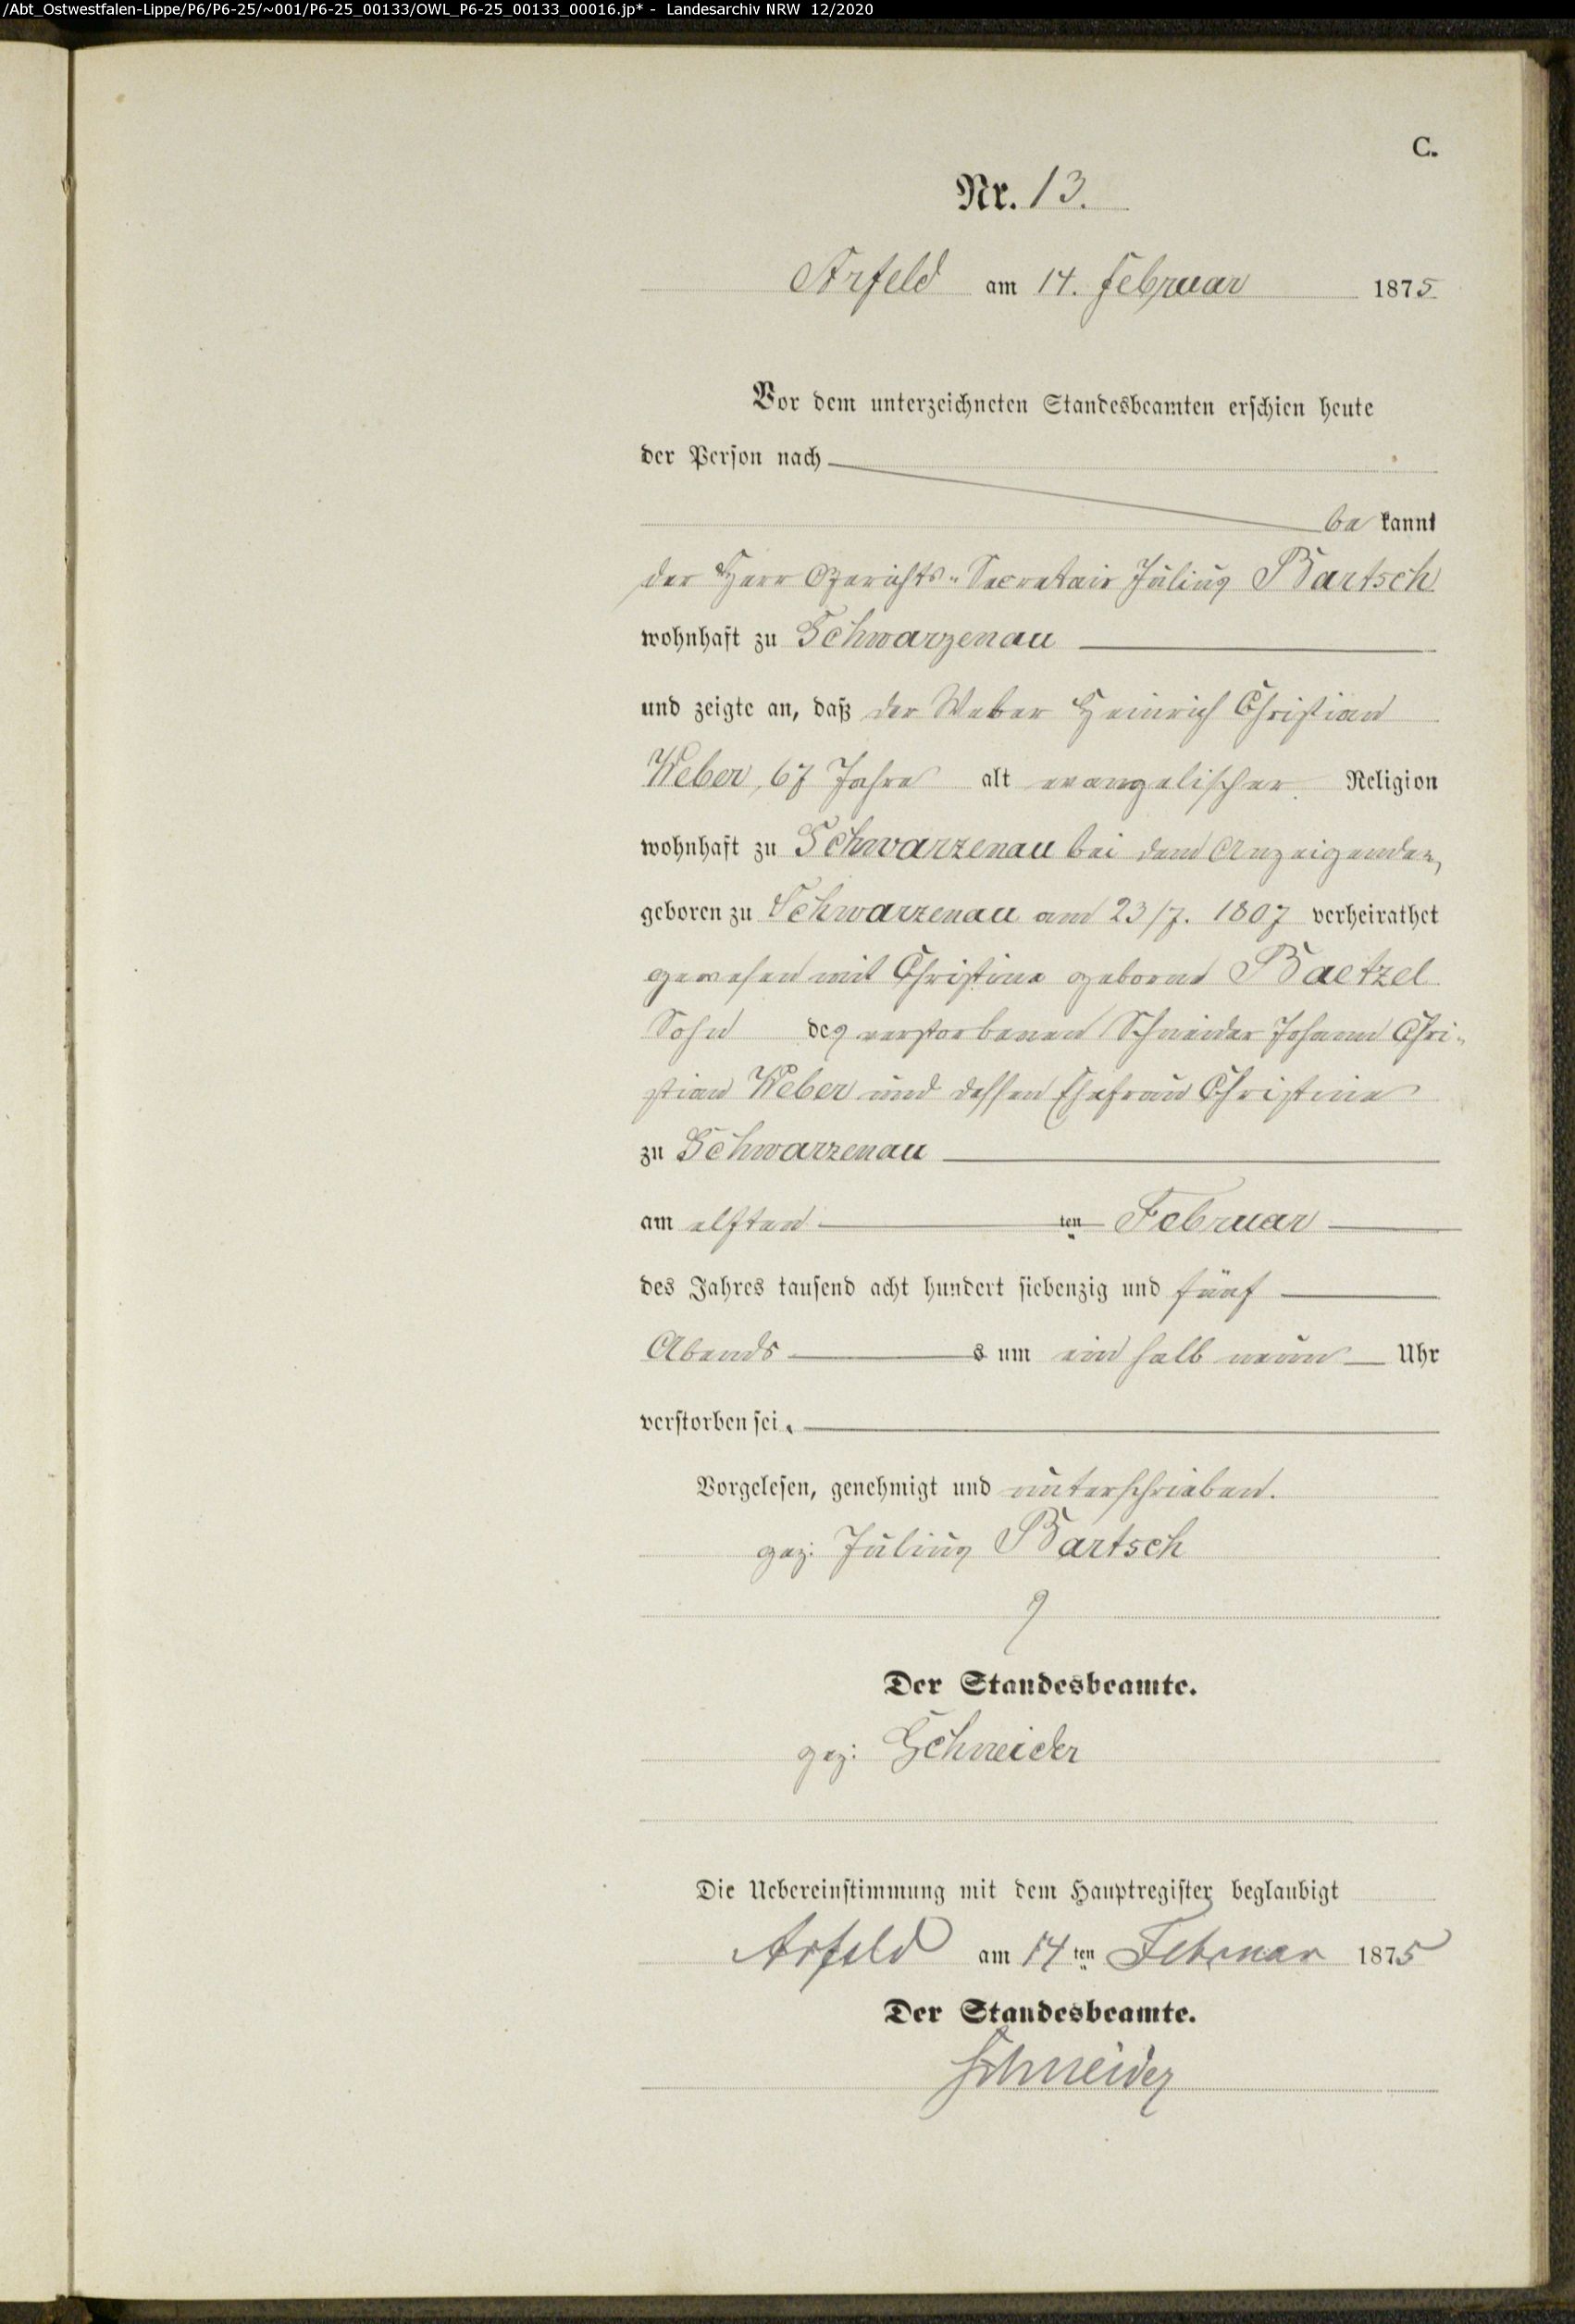 /Abt_Ostwestfalen-Lippe/P6/P6-25/~001/P6-25_00133/OWL_P6-25_00133_00016.jp* - Landesarchiv NRW 12/2020
C.
Nr. 13.
Arfeld am 14. Februar 1875
Vor dem unterzeichneten Standesbeamten erschien heute
der Person nach
be kannt
der Herr Gerichts-Secretair Julius Bartsch
wohnhaft zu Schwarzenau
und zeigte an, daß der Weber Heinrich Christian
Weber, 67 Jahre alt evangelischer Religion
wohnhaft zu Schwarzenau bei dem Anzeigenden,
geboren zu Schwarzenau am 23/7. 1807 verheirathet
gewesen mit Christine geborne Baetzel
Sohn des verstorbenen Schneider Johann Chri-
stian Weber und dessen Ehefrau Christine
zu Schwarzenau
am elften ten Februar
des Jahres tausend acht hundert siebenzig und fünf
Abends s um ein halb neun Uhr
verstorben sei.
Vorgelesen, genehmigt und unterschrieben.
gez: Julius Bartsch
Der Standesbeamte.
gez: Schneider
Die Uebereinstimmung mit dem Hauptregister beglaubigt
Arfeld am 14 ten Februar 1875
Der Standesbeamte.
Schneider